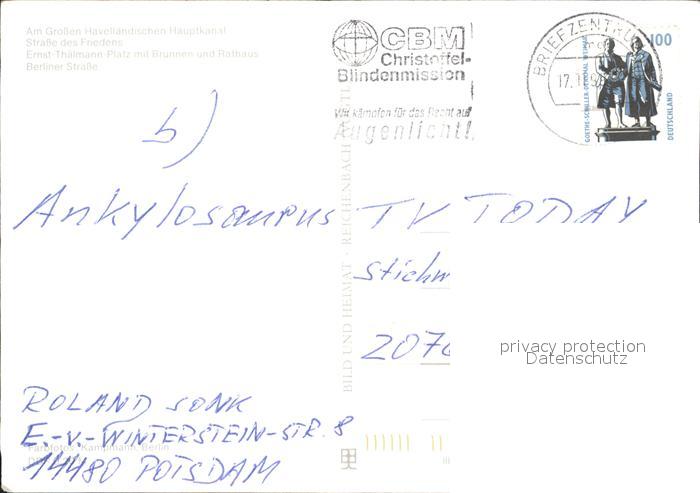 Am Großen Havelländischen Hauptkanal
Straße des Friedens
Ernst-Thälmann-Platz mit Brunnen und Rathaus
Berliner Straße
CBM
Christoffel-
Blindenmission
Wir kämpfen für das Recht auf
Augenlicht!
BRIEFZENTRUM
17.
100
GOETHE-SCHILLER-DENKMAL WEIMAR
DEUTSCHLAND
b)
Ankylosaurus TV TODAY
Stichw
2070
BILD UND HEIMAT · REICHENBACH
privacy protection
Datenschutz
ROLAND SONK
E.-V.-WINTERSTEIN-STR. 8
Farbfotos: Kampmann, Berlin
14480 POTSDAM